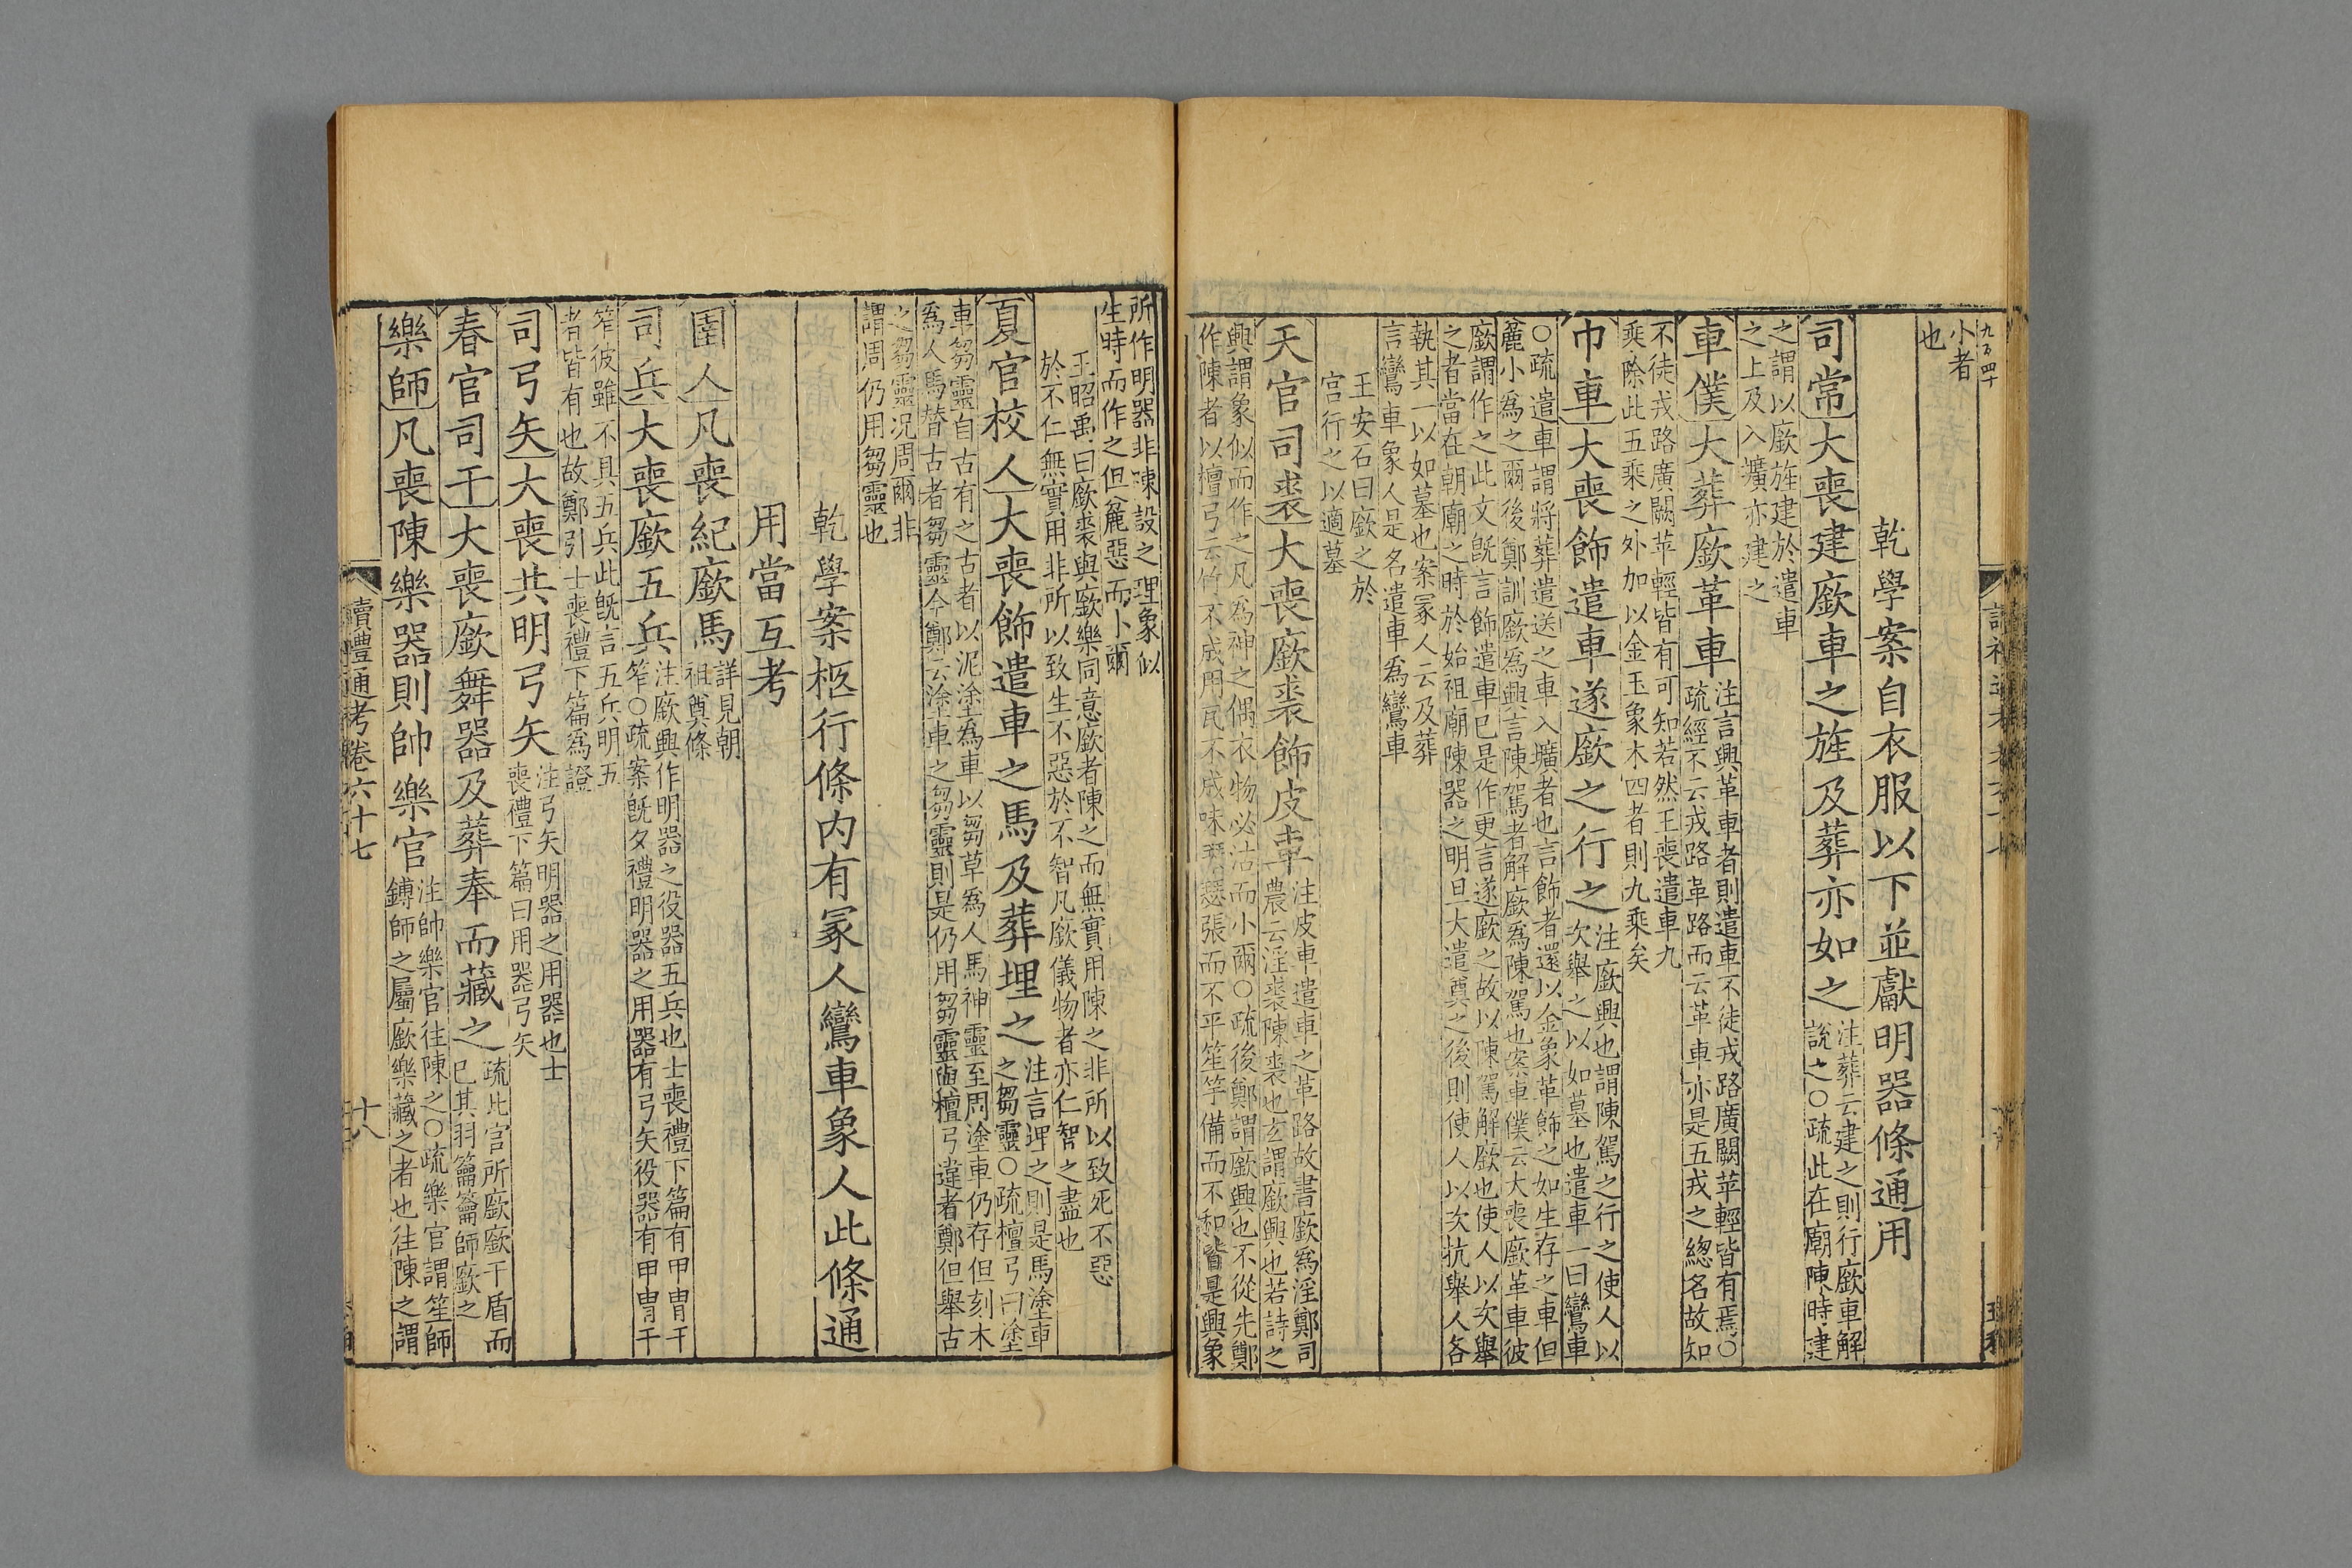 小者
也
乾學案自衣服以下並獻明器條通用
司常大喪建廞車之旌及葬亦如之
注葬云建之則行廞車解
說之○疏此在廟陳時建
之謂以廞旌建於遣車
之上及入壙亦建之
車僕大葬廞革車
注言興革車者則遣車不徒戎路廣闕苹輕皆有焉○
疏經不云戎路革路而云革車亦是五戎之總名故知
不徒戎路廣闕苹輕皆有可知若然王喪遣車九
乘除此五乘之外加以金玉象木四者則九乘矣
巾車大喪飾遣車遂廞之行之
注廞興也謂陳駕之行之使人以
次舉之以如墓也遣車一曰鸞車
○疏遣車謂將葬遣送之車入壙者也言飾者還以金象革飾之如生存之車但
麄小爲之爾後鄭訓廞爲興言陳駕者解廞爲陳駕也案車僕云大喪廞革車彼
廞謂作之此文旣言飾遣車已是作更言遂廞之故以陳駕解廞也使人以次舉
之者當在朝廟之時於始祖廟陳器之明旦大遣奠之後則使人以次抗舉人各
執其一以如墓也案冢人云及葬
言鸞車象人是名遣車爲鸞車
王安石曰廞之於
宮行之以適墓
天官司裘大喪廞裘飾皮車
注皮車遣車之革路故書廞爲淫鄭司
農云淫裘陳裘也玄謂廞興也若詩之
興謂象似而作之凡爲神之偶衣物必沽而小爾○疏後鄭謂廞興也不從先鄭
作陳者以檀弓云竹不成用瓦不成味琴瑟張而不平笙竽備而不和皆是興象
所作明器非陳設之理象似
生時而作之但麄惡而卜爾
王昭禹曰廞裘與廞樂同意廞者陳之而無實用陳之非所以致死不惡
於不仁無實用非所以致生不惡於不智凡廞儀物者亦仁智之盡也
夏官校人大喪飾遣車之馬及葬埋之
注言埋之則是馬塗車
之芻靈○疏檀弓曰塗
車芻靈自古有之古者以泥塗爲車以芻草爲人馬神靈至周塗車仍存但刻木
爲人馬替古者芻靈今鄭云塗車之芻靈則是仍用芻靈與檀弓違者鄭但舉古
之芻靈況周爾非
謂周仍用芻靈也
乾學案柩行條内有冢人鸞車象人此條通
用當互考
圉人凡喪紀廞馬
詳見朝
祖奠條
司兵大喪廞五兵
注廞興作明器之役器五兵也士喪禮下篇有甲冑干
笮○疏案旣夕禮明器之用器有弓矢役器有甲冑干
笮彼雖不具五兵此旣言五兵明五
者皆有也故鄭引士喪禮下篇爲證
司弓矢大喪共明弓矢
注弓矢明器之用器也士
喪禮下篇曰用器弓矢
春官司干大喪廞舞器及葬奉而藏之
疏此官所廞廞干盾而
已其羽籥籥師廞之
樂師凡喪陳樂器則帥樂官
注帥樂官往陳之○疏樂官謂笙師
鎛師之屬廞樂藏之者也往陳之謂
讀禮通考卷六十七
十八